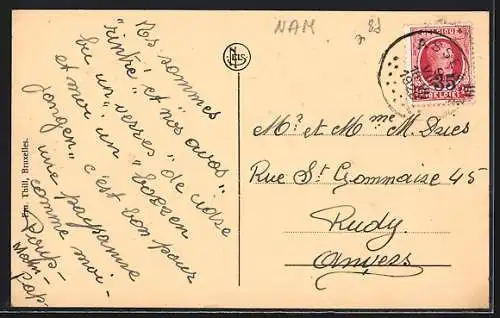 NAM
Nos sommes
"rintré" et nos avos"
bu un "verres" de cidse
et moi un "
jongen" c'est bon pour
une paysanne
comme moi -
Poup-
Mam-
Pap-
Ern. Thill, Bruxelles.
NELS
BELGIQUE
35c
BELGIË
Mr et Mme M. Dries
Rue St Gommaire 45
Rudy.
Anvers